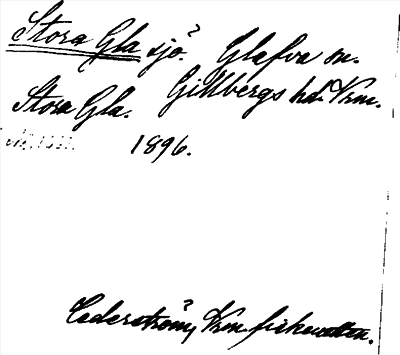 Stora Gla sjö? Glafva sn.
Stora Gla. Gillbergs hd. Vrm.
1896.
Cederström, Vrm fiskevatten.